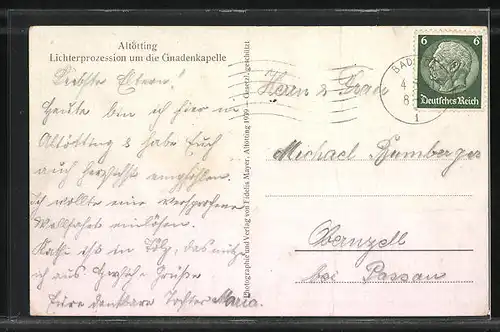 Altötting
Lichterprozession um die Gnadenkapelle
Liebste Eltern!
Heute bin ich hier in
Altötting & habe Euch
auch herzlichst empfohlen.
Ich wollte eine versprochene
Wallfahrt einlösen.
ist in Tölz, das
ich aus Herzliche Grüße
Eure dankbare Tochter Maria.
Photographie und Verlag von Fidelis Mayer, Altötting 1939 — Gesetzl. geschützt
BAD
4
8
1
6 6
Deutsches Reich
Herrn & Frau
Michael Bumberger
Obernzell
bei Passau